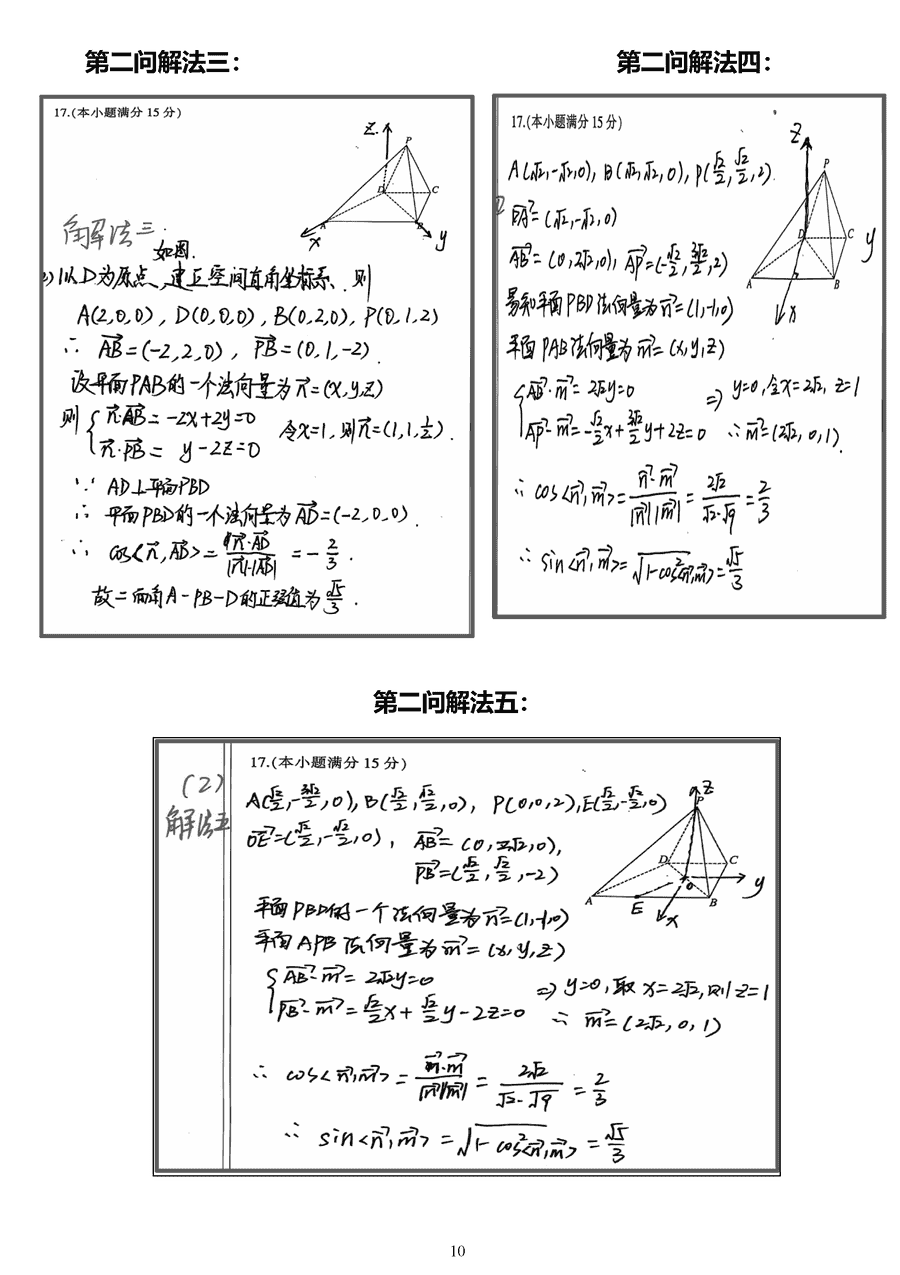 第二问解法三：
17.(本小题满分 15 分)
z
P
D
C
A
B
x
y
解法三
如图.
2) 以D为原点、建立空间直角坐标系、则
A(2,0,0), D(0,0,0), B(0,2,0), P(0,1,2)
∴ AB⃗=(-2,2,0), PB⃗=(0,1,-2).
设平面PAB的一个法向量为n⃗=(x,y,z)
则 { n⃗·AB⃗ = -2x+2y=0
n⃗·PB⃗ = y-2z=0
令x=1, 则n⃗=(1,1,½).
∵ AD⊥平面PBD
∴ 平面PBD的一个法向量为AD⃗=(-2,0,0).
∴ cos<n⃗,AD⃗>= n⃗·AD⃗/|n⃗|·|AD⃗| = -2/3.
故二面角A-PB-D的正弦值为√5/3.
第二问解法四：
17.(本小题满分 15 分)
z
P
D
C
y
A
B
x
A(√2,-√2,0), B(√2,√2,0), P(√2/2,√2/2,2)
DA⃗=(√2,-√2,0)
AB⃗=(0,2√2,0), AP⃗=(-√2/2,3√2/2,2)
易知平面PBD法向量为n⃗=(1,-1,0)
平面PAB法向量为m⃗=(x,y,z)
{ AB⃗·m⃗=2√2y=0
AP⃗·m⃗=-√2/2x+3√2/2y+2z=0
⇒ y=0,令x=2√2, z=1
∴ m⃗=(2√2,0,1).
∴ cos<n⃗,m⃗>= n⃗·m⃗/|n⃗||m⃗| = 2√2/√2·√9 = 2/3
∴ sin<n⃗,m⃗>=√1-cos²<n⃗,m⃗>=√5/3
第二问解法五：
(2)
解法五
17.(本小题满分 15 分)
A(√2/2,-3√2/2,0), B(√2/2,√2/2,0), P(0,0,2),E(√2/2,-√2/2,0)
OE⃗=(√2/2,-√2/2,0), AB⃗=(0,2√2,0),
PB⃗=(√2/2,√2/2,-2)
z
P
D
C
O
y
A
E
B
x
平面PBD的一个法向量为n⃗=(1,-1,0)
平面APB法向量为m⃗=(x,y,z)
{ AB⃗·m⃗=2√2y=0
PB⃗·m⃗=√2/2x+√2/2y-2z=0
⇒ y=0,取x=2√2,则z=1
∴ m⃗=(2√2,0,1)
∴ cos<n⃗,m⃗>= n⃗·m⃗/|n⃗||m⃗| = 2√2/√2·√9 = 2/3
∴ sin<n⃗,m⃗>=√1-cos²<n⃗,m⃗>=√5/3
10